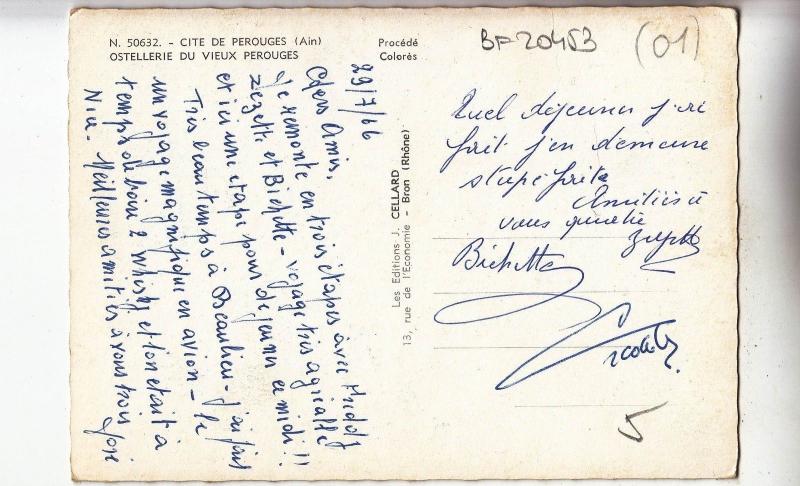 N. 50632. - CITE DE PEROUGES (Ain)
OSTELLERIE DU VIEUX PEROUGES
Procédé
Colorès
BF20453
(01)
29/7/66
Chers Amis,
Je remonte en trois étapes avec
Zezette et Bichette - voyage très agréable
et ici une étape pour déjeuner ce midi !!
Très beau temps à Beaulieu - j'ai fait
un voyage magnifique en avion - le
temps de boire 2 whisky et l'on était à
Nice. Meilleures amitiés à vous trois
Les Editions J. CELLARD
13, rue de l'Economie - Bron (Rhône)
Quel déjeuner j'ai
fait j'en demeure
stupéfaite
Amitiés à
vous
Bichette
5